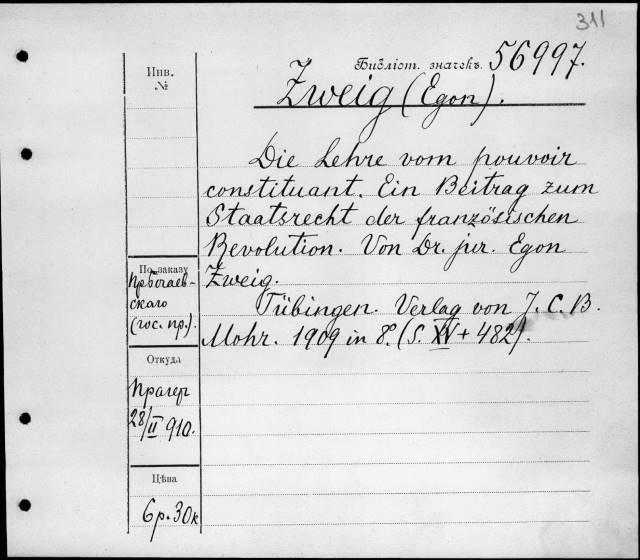 311
Инв.
№
Библіот. значекъ 56997.
Zweig (Egon).
Die Lehre vom pouvoir
constituant. Ein Beitrag zum
Staatsrecht der französischen
Revolution. Von Dr. jur. Egon
Zweig.
Tübingen. Verlag von J. C. B.
Mohr. 1909 in 8. (S. XV + 482).
По заказу
скаго
(гос. пр.).
Откуда
Прагер
28/II 910.
Цѣна
6 р. 30 к